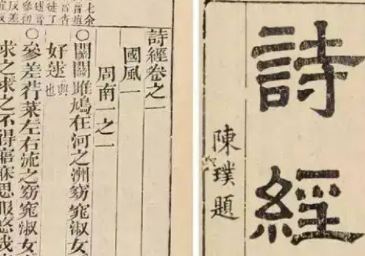 詩經
陳璞題
詩經卷之一
國風一
周南一之一
○關關雎鳩在河之洲窈窕淑女
好逑興也
○參差荇菜左右流之窈窕淑女
求之求之不得寤寐思服悠哉